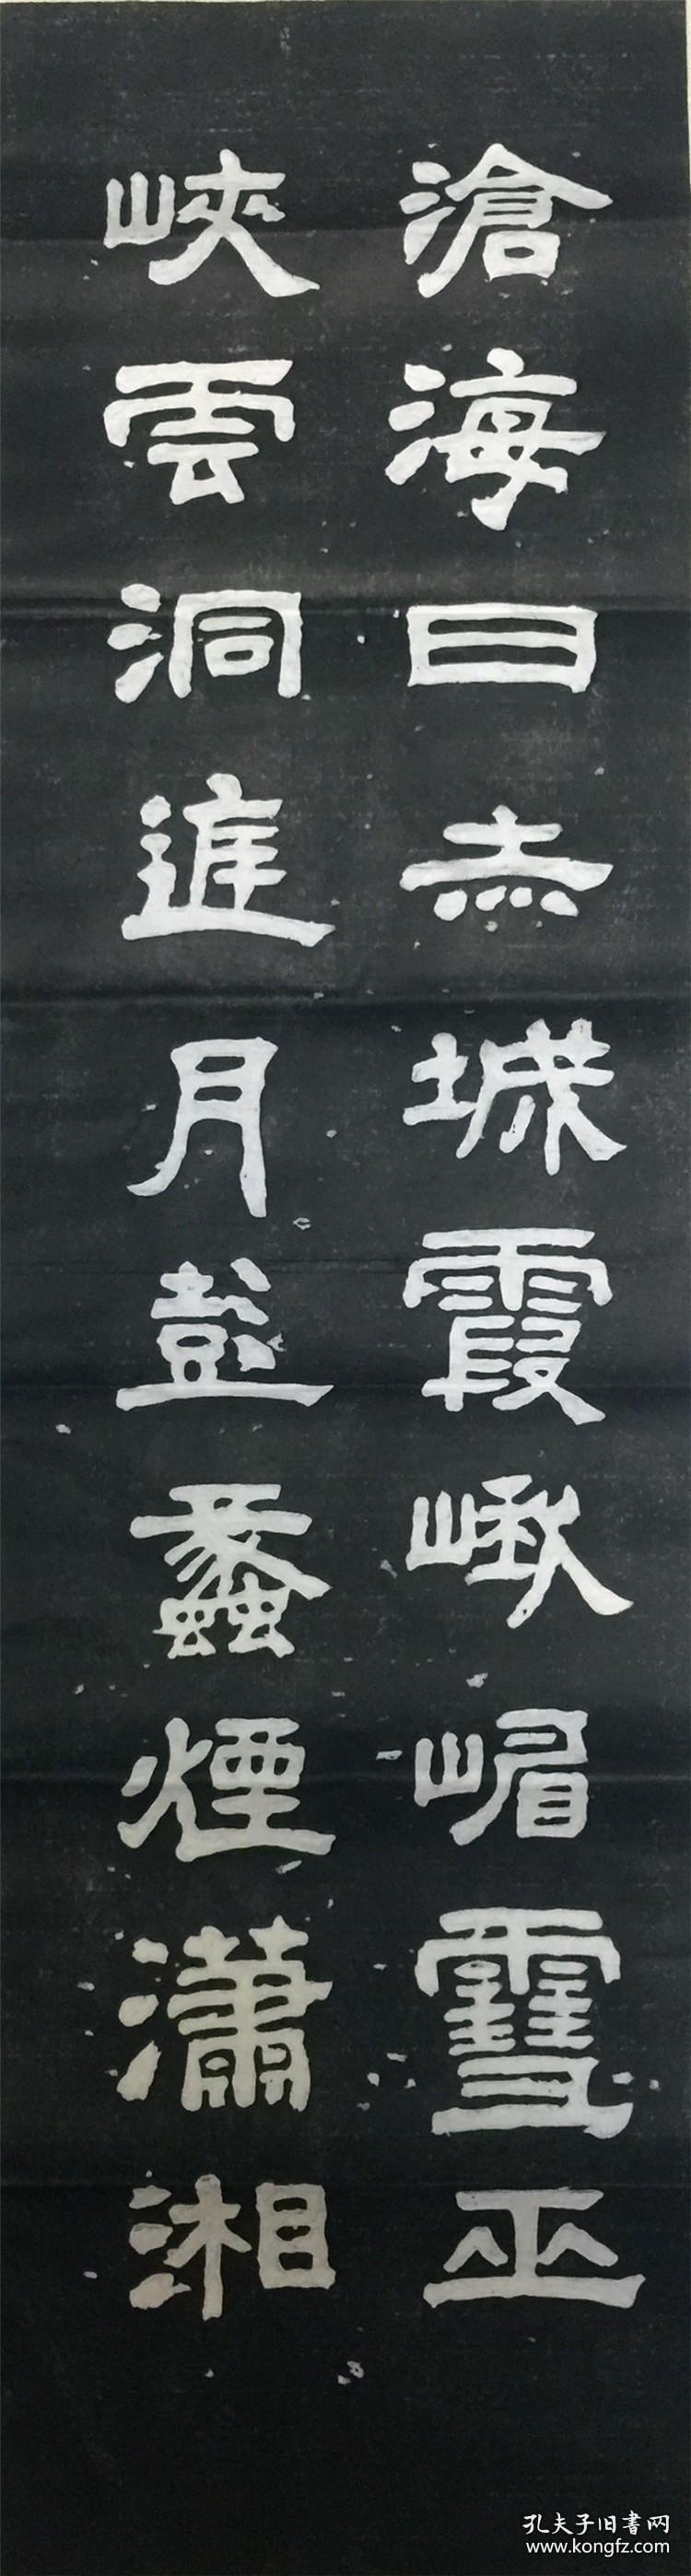 滄海日赤城霞峨嵋雪巫
峽雲洞庭月彭蠡煙瀟湘
孔夫子旧书网
www.kongfz.com